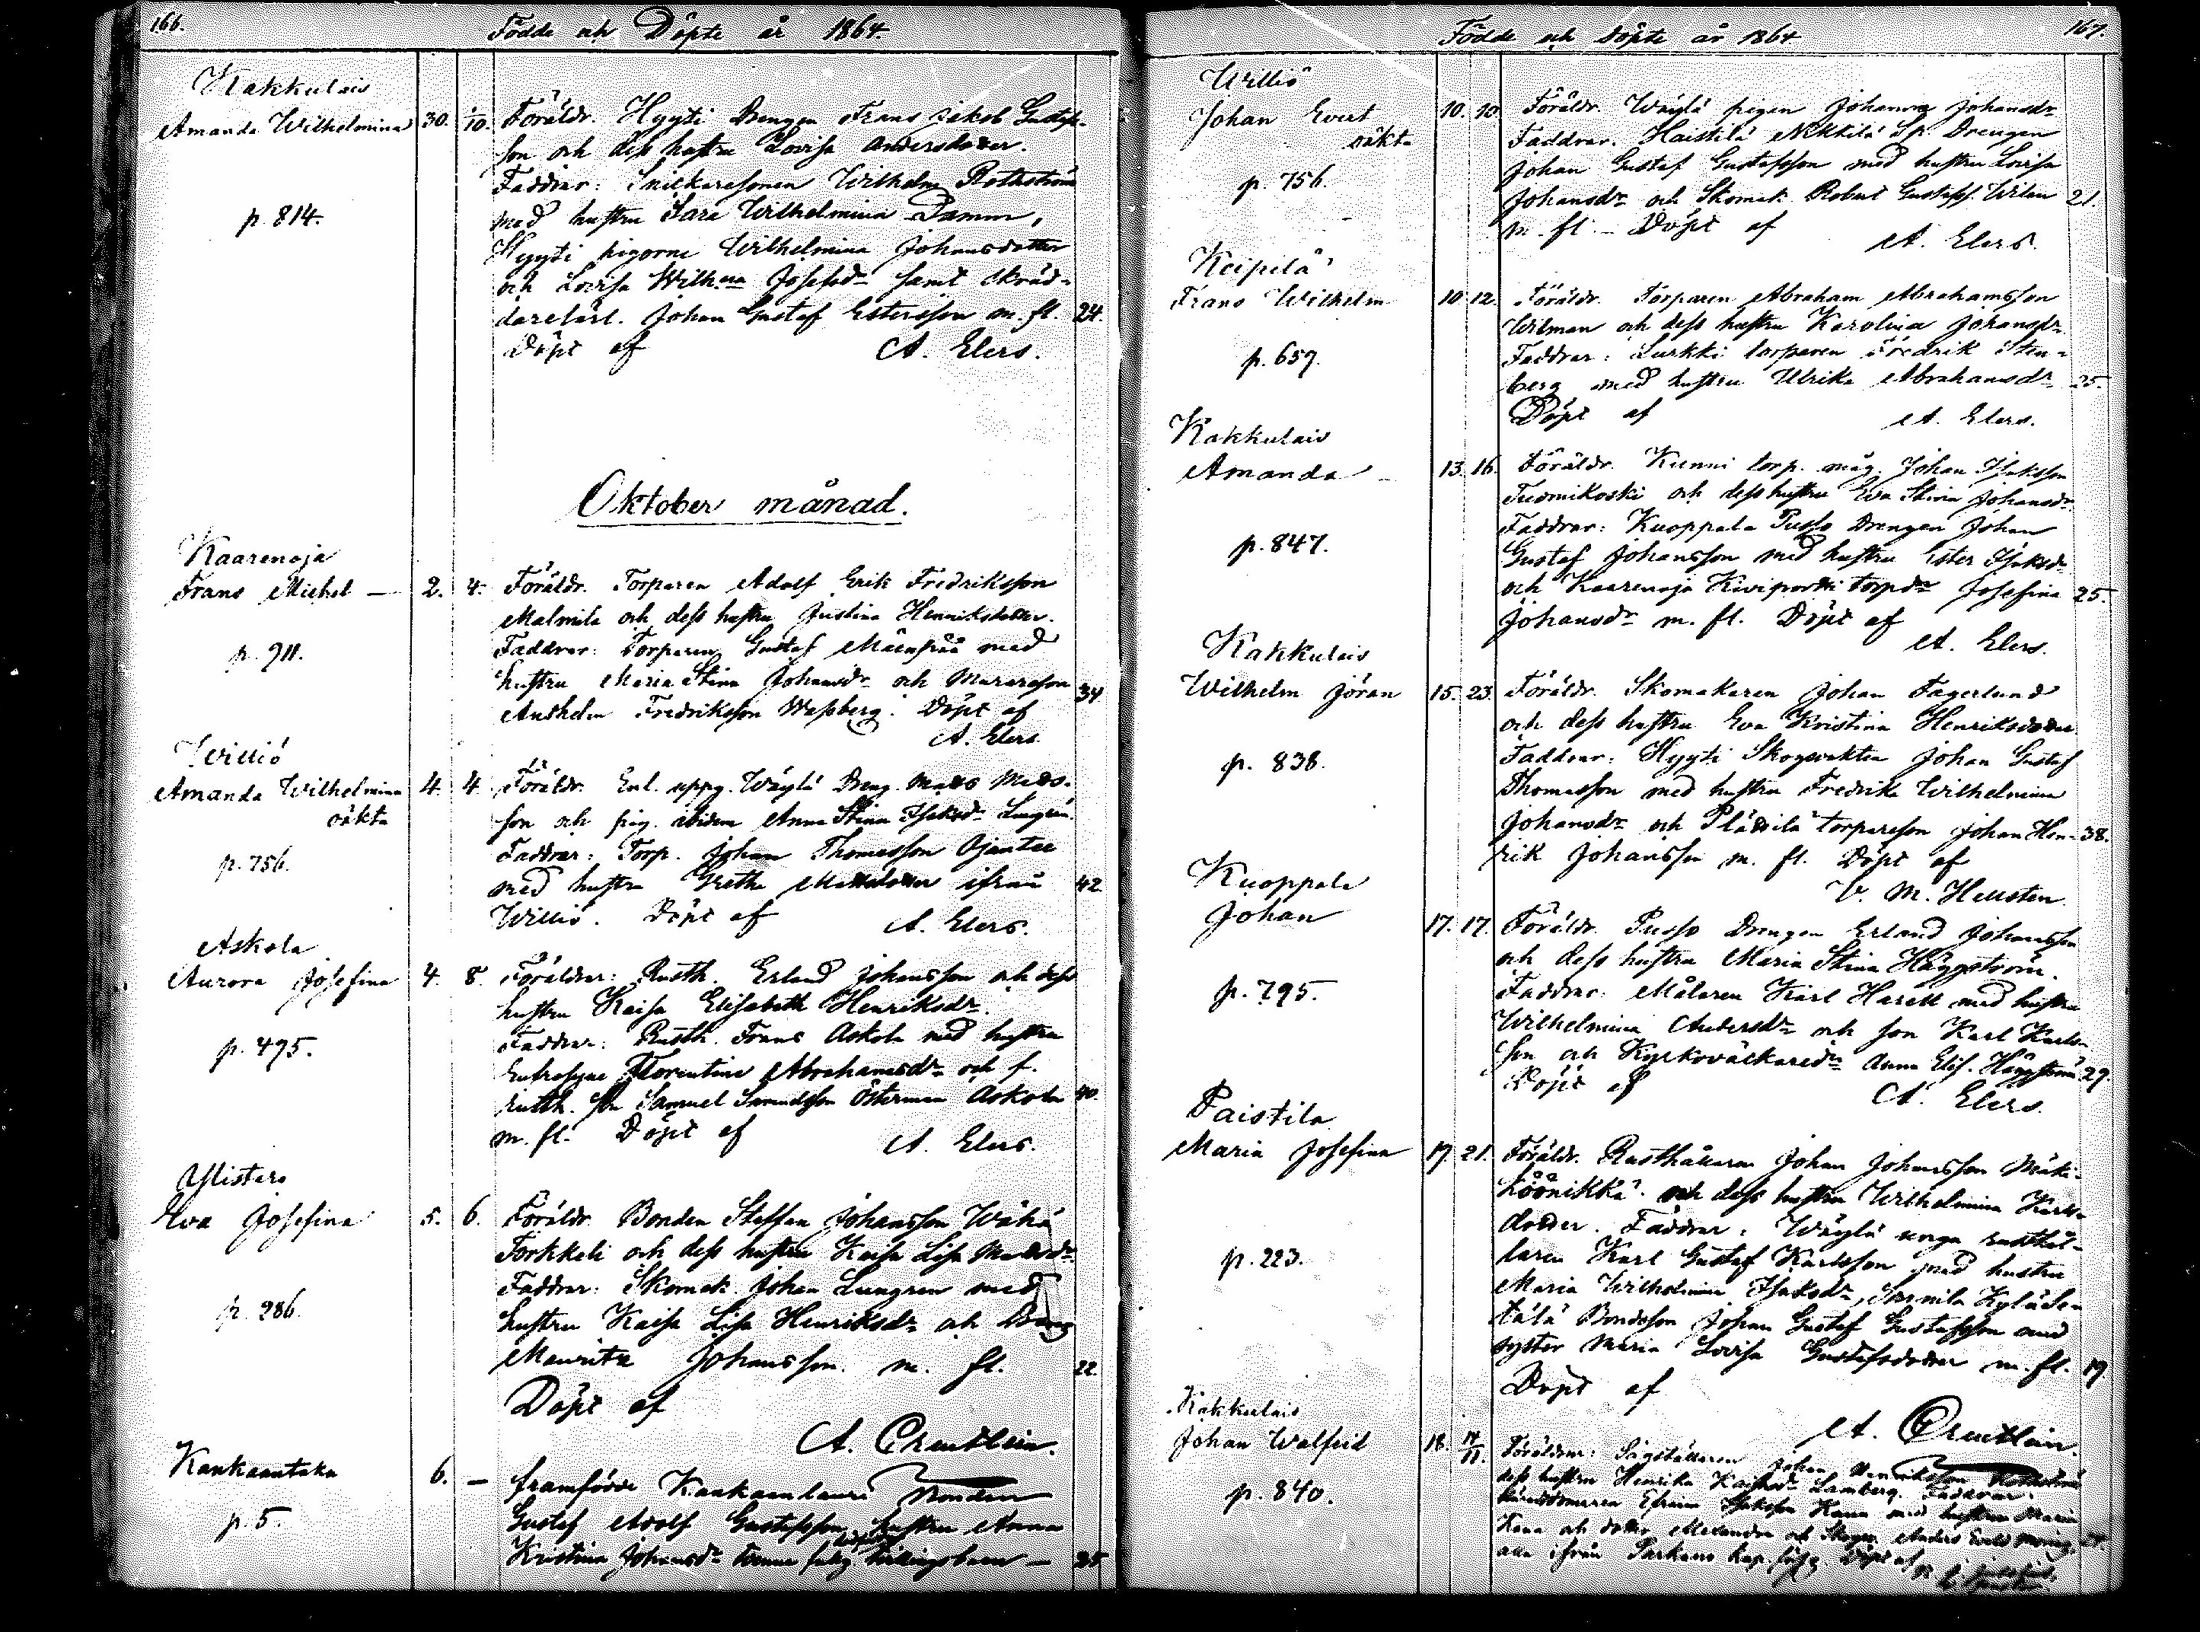 166.
Födde och Döpte år 1864
Kakkulais
Amanda Wilhelmina 30. 1/10. Föräldr. Hyyti Drengen Frans Jakob Gustafs-
son och dess hustru Lovisa Andersdotter.
Faddrar: Snickaresonen Wilhelm Rothström
p. 814. med hustru Sara Wilhelmina Damm,
Hyyti pigorne Wilhelmina Johansdotter
och Lovisa Josefsdr samt skräd-
darelärl. Johan Gustaf Estersson m. fl. 24.
Döpt af A. Elers.
Oktober månad.
Kaarenoja
Frans Michel — 2. 4. Föräldr. Torparen Adolf Erik Fredriksson
Malmila och dess hustru Justina Henriksdotter.
p. 911. Faddrar: Torparen Gustaf med
hustru Maria Stina Johansdr och Murareson
Fredriksson Döpt af 34
A. Elers.
Williö
Amanda Wilhelmina 4. 4. Föräldr. Enl. uppg. Wäylä Dreng Matts Matts-
oäkta son och pig. ibidem Anna Stina Isaksdr
p. 756. Faddrar: Torp. Johan Thomasson Ojantee
med hustru Greta Mattsdotter ifrån 42
Williö. Döpt af A. Elers.
Askola
Aurora Josefina 4. 8. Föräldrar: Rusth. Erland Johansson och dess
hustru Kaisa Elisabeth Henriksdr.
p. 495. Faddrar: Rusth. Frans Askola med hustru
Eufrosyne Florentine Abrahamsdr och f.
rusth. son Samuel Samuelsson Österman Askola 40.
m. fl. Döpt af A. Elers.
Ylistaro
Eva Josefina 5. 6. Föräldr. Bonden Staffan Johansson Wähä
Torkkeli och dess hustru Kaisa Lisa Mattsdr.
p. 286. Faddrar: Skomak. Johan Lungren med
hustru Kaisa Lisa Henriksdr och Dreng
Mauritz Johansson m. fl. 22.
Döpt af
A. Crentlein.
Kankaantaka 6. — framfödde Kankaanlauri Bonden
p. 5. Gustaf Adolf Gustafsson hustru Anna
Kristina Johansdr tvenne tvillingsbarn — 35
167.
Födde och Döpte år 1864
Williö
Johan Evert 10. 10. Föräldr. Wäylä pigan Johanna Johansdr
oäkta Faddrar. Haistila Nikkilä Sp. Drengen
p. 756. Johan Gustaf Gustafsson med hustru Lovisa
Johansdr och Skomak. Robert Gustafss. Wilen 21.
m. fl. — Döpt af A. Elers.
Keipilä
Frans Wilhelm 10. 12. Föräldr. Torparen Abraham Abrahamsson
Wilman och dess hustru Karolina Johansdr.
p. 659. Faddrar: Surkki torparen Fredrik Sten-
berg med hustru Ulrika Abrahamsdr 25.
Döpt af A. Elers.
Kakkulais
Amanda 13. 16. Föräldr. Kunni torp. måg. Johan Isaksson
Tuomikoski och dess hustru Eva Stina Johansdr.
p. 847. Faddrar: Kuoppala Pusso Drengen Johan
Gustaf Johansson med hustru Ester Isaksdr
och Kaarenoja Kiviportti torpdr Josefina 25.
Johansdr m. fl. Döpt af
A. Elers.
Kakkulais
Wilhelm Jöran 15. 23. Föräldr. Skomakaren Johan Fagerlund
och dess hustru Eva Kristina Henriksdotter
p. 838. Faddrar: Hyyti Skogsvakten Johan Gustaf
Thomasson med hustru Fredrika Wilhelmina
Johansdr och torpareson Johan Hen- 38.
rik Johansson m. fl. Döpt af
V. M. Hellsten.
Kuoppala
Johan 17. 17. Föräldr. Pusso Drengen Erland Johansson
och dess hustru Maria Stina Häggström.
p. 795. Faddrar: Målaren Karl Harell med hustru
Wilhelmina Andersdr och son Karl Karls-
son och Kyrkoväktaredr Anna Elis. Häggström 29.
Döpt af A. Elers.
Paistila
Maria Josefina 19. 21. Föräldr. Rusthållaren Johan Johansson Mäki-
Löönikkä och dess hustru Wilhelmina Karls-
dotter. Faddrar: Wäylä unga rusthål-
p. 223. laren Karl Gustaf Karlsson med hustru
Maria Wilhelmina Isaksdr,
Bondsson Johan Gustaf Gustafsson and
syster Maria Lovisa Gustafsdotter m. fl. 19
Döpt af
A. Crentlein.
Kakkulais
Johan Walfrid 18. Föräldrar: Johan Henriksson
p. 840. dess hustru Henrika Lamberg. Faddrar:
Efraim Isaksson Kana med hustru Maria
Kana och dotter Alexandra och Anders
alla ifrån kap. förs. Döpt af